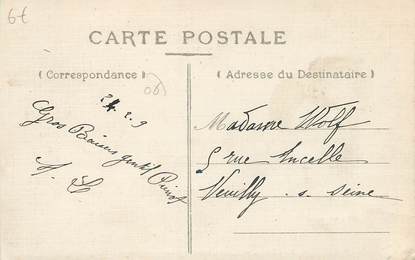 6€
CARTE POSTALE
( Correspondance )
( Adresse du Destinataire )
24.2.9
Gros Baisers gentil
Madame Wolf
5 rue Ancelle
Neuilly s. Seine